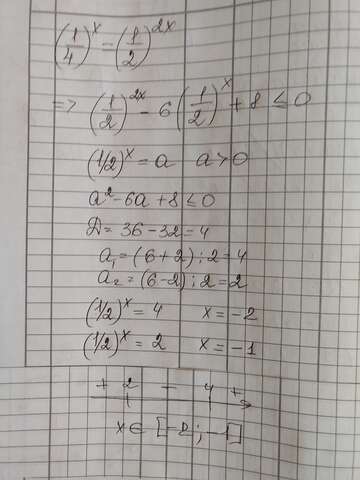 (1/4)^x = (1/2)^2x
=> (1/2)^2x - 6(1/2)^x + 8 ≤ 0
(1/2)^x = a a > 0
a² - 6a + 8 ≤ 0
D = 36 - 32 = 4
a₁ = (6 + 2) : 2 = 4
a₂ = (6 - 2) : 2 = 2
(1/2)^x = 4 x = -2
(1/2)^x = 2 x = -1
+ 2 - 4 +
x ∈ [-2; -1]